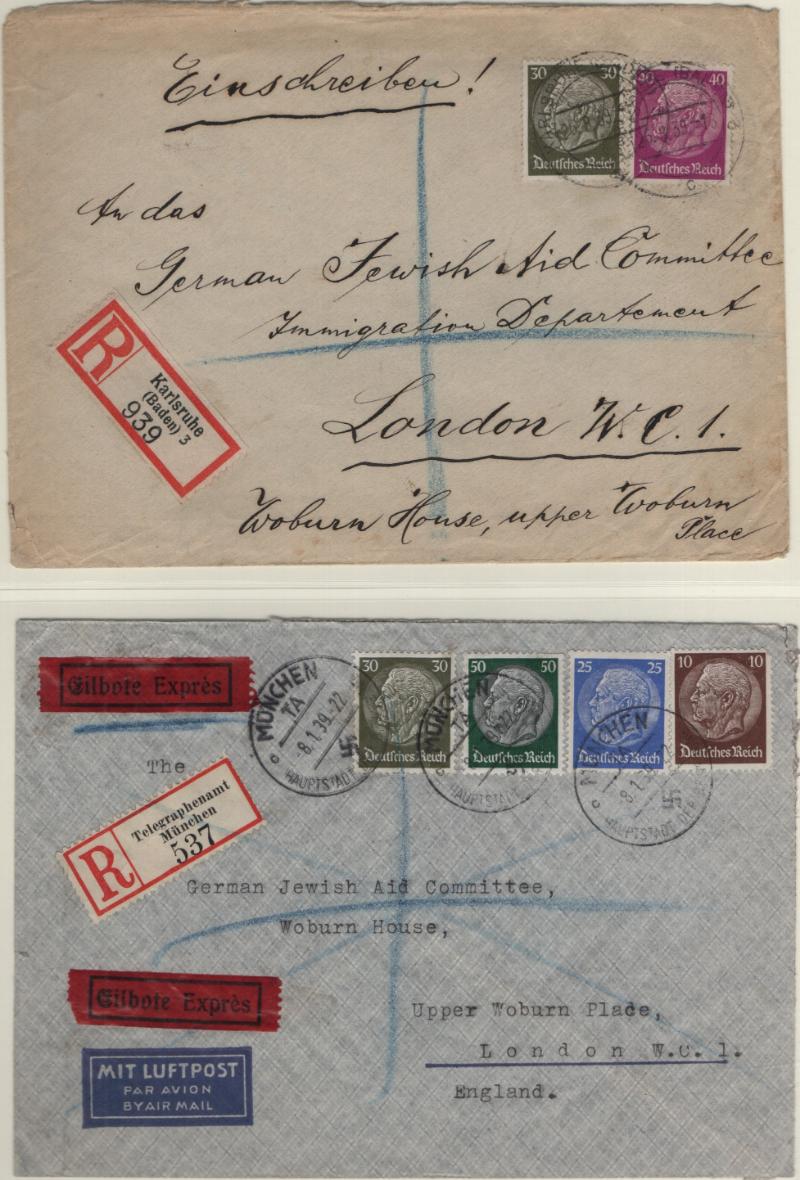 Einschreiben!
30 30
40
Deutsches Reich
Deutsches Reich
An das
German Jewish Aid Committee
Immigration Departement
R
Karlsruhe
(Baden) 3
939
London W.C.1.
Woburn House, upper Woburn
Place
Eilbote Exprès
MÜNCHEN
TA
8.1.39.-22
HAUPTSTADT
30 30
Deutsches Reich
50 50
Deutsches Reich
25 25
Deutsches Reich
10 10
Deutsches Reich
MÜNCHEN
TA
HAUPTSTADT
MÜNCHEN
8.1.
HAUPTSTADT DER
The
R
Telegraphenamt
München
537
German Jewish Aid Committee,
Woburn House,
Eilbote Exprès
Upper Woburn Plade,
London W.C.1.
England.
MIT LUFTPOST
PAR AVION
BY AIR MAIL